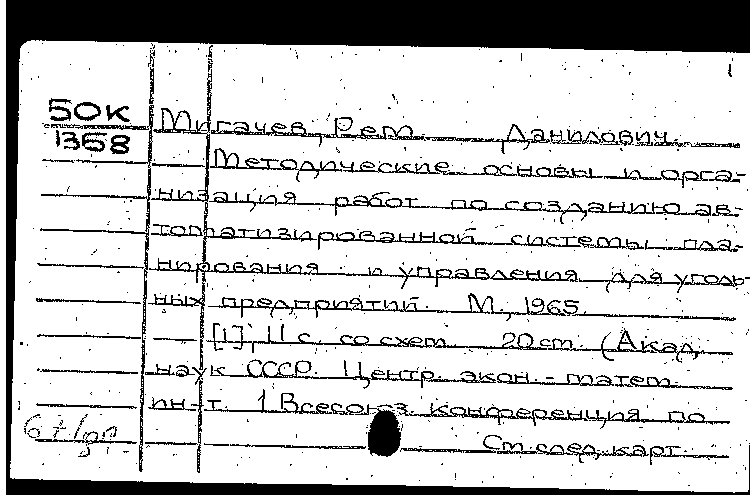 1
50К
1368
Мигачев, Рем Данилович.
Методические основы и орга-
низация работ по созданию ав-
томатизированной системы пла-
нирования и управления для уголь-
ных предприятий. М., 1965.
[1], 11 с. со схем. 20 см. (Акад.
наук СССР. Центр. экон.-матем.
ин-т. 1 Всесоюз. конференция по
См. след. карт.